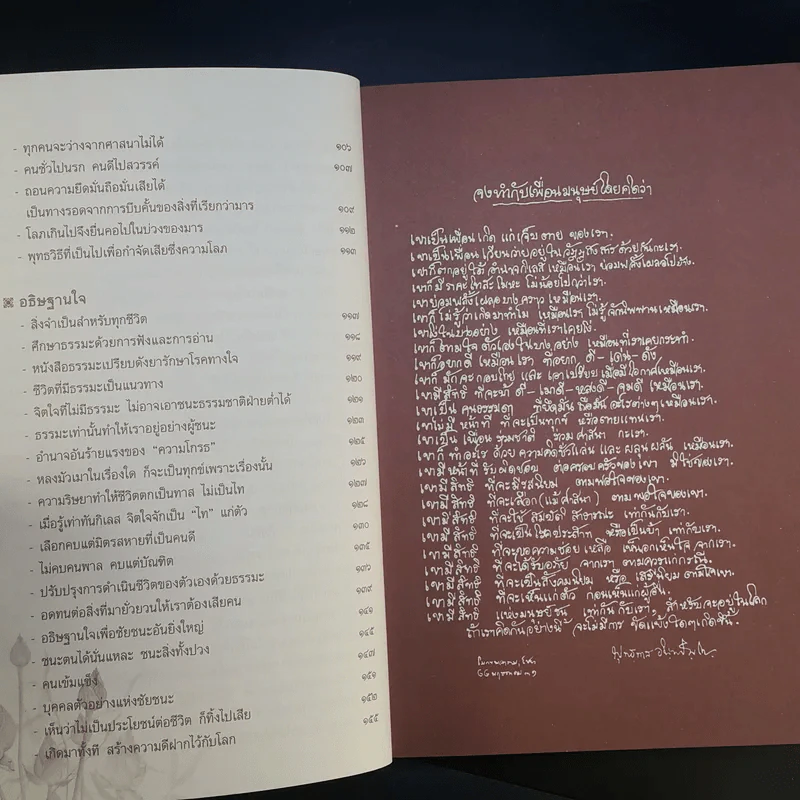 - ทุกคนจะว่างจากศาสนาไม่ได้ ๑๐๖
- คนชั่วไปนรก คนดีไปสวรรค์ ๑๐๗
- ถอนความยึดมั่นถือมั่นเสียได้
เป็นทางรอดจากการบีบคั้นของสิ่งที่เรียกว่ามาร ๑๐๙
- โลภเกินไปจึงยื่นคอไปในบ่วงของมาร ๑๑๒
- พุทธวิธีที่เป็นไปเพื่อกำจัดเสียซึ่งความโลภ ๑๑๓
อธิษฐานใจ
- สิ่งจำเป็นสำหรับทุกชีวิต ๑๑๗
- ศึกษาธรรมะด้วยการฟังและการอ่าน ๑๑๘
- หนังสือธรรมะเปรียบดังยารักษาโรคทางใจ ๑๑๙
- ชีวิตที่มีธรรมะเป็นแนวทาง ๑๒๐
- จิตใจที่ไม่มีธรรมะ ไม่อาจเอาชนะธรรมชาติฝ่ายต่ำได้ ๑๒๑
- ธรรมะเท่านั้นทำให้เราอยู่อย่างผู้ชนะ ๑๒๓
- อำนาจอันร้ายแรงของ “ความโกรธ” ๑๒๕
- หลงมัวเมาในเรื่องใด ก็จะเป็นทุกข์เพราะเรื่องนั้น ๑๒๖
- ความริษยาทำให้ชีวิตตกเป็นทาส ไม่เป็นไท ๑๒๗
- เมื่อรู้เท่าทันกิเลส จิตใจจักเป็น “ไท” แก่ตัว ๑๒๘
- เลือกคบแต่มิตรสหายที่เป็นคนดี ๑๓๐
- ไม่คบคนพาล คบแต่บัณฑิต ๑๓๕
- ปรับปรุงการดำเนินชีวิตของตัวเองด้วยธรรมะ ๑๓๖
- อดทนต่อสิ่งที่มายั่วยวนให้เราต้องเสียคน ๑๓๙
- อธิษฐานใจเพื่อชัยชนะอันยิ่งใหญ่ ๑๔๑
- ชนะตนได้นั่นแหละ ชนะสิ่งทั้งปวง ๑๔๕
- คนเข้มแข็ง ๑๔๗
- บุคคลตัวอย่างแห่งชัยชนะ ๑๕๑
- เห็นว่าไม่เป็นประโยชน์ต่อชีวิต ก็ทิ้งไปเสีย ๑๕๒
- เกิดมาทั้งที สร้างความดีฝากไว้กับโลก ๑๕๕
จงทำกับเพื่อนมนุษย์โดยคิดว่า
เขาเป็นเพื่อนเกิด แก่ เจ็บ ตาย ของเรา.
เขาเป็นเพื่อนเวียนว่ายอยู่ในวัฏฏสงสารด้วยกันกะเรา.
เขาก็ตกอยู่ใต้อำนาจกิเลส เหมือนเรา ย่อมพลั้งเผลอไปบ้าง.
เขาก็มีราคะ โทสะ โมหะ ไม่น้อยไปกว่าเรา.
เขาย่อมพลั้งเผลอบางคราว เหมือนเรา.
เขาก็ไม่รู้ว่าเกิดมาทำไม เหมือนเรา ไม่รู้จักนิพพานเหมือนเรา.
เขาโง่ในบางอย่าง เหมือนที่เราเคยโง่.
เขาก็ตามใจตัวเองในบางอย่าง เหมือนที่เราเคยกระทำ.
เขาก็อยากดี เหมือนเรา ที่อยาก ดี - เด่น - ดัง
เขาก็มักจะกอบโกย และเอาเปรียบ เมื่อมีโอกาสเหมือนเรา.
เขามีสิทธิ ที่จะบ้าดี - เมาดี - หลงดี - จมดี เหมือนเรา.
เขาเป็นคนธรรมดา ที่ยึดมั่น ถือมั่น อะไรต่างๆ เหมือนเรา.
เขาไม่มีหน้าที่ ที่จะเป็นทุกข์ หรือตายแทนเรา.
เขาเป็นเพื่อนร่วมชาติ ร่วมศาสนา กะเรา.
เขาก็ทำอะไรด้วยความคิดชั่วแล่น และผลุนผลัน เหมือนเรา.
เขามีหน้าที่รับผิดชอบ ต่อครอบครัวของเขา มิใช่ของเรา.
เขามีสิทธิ ที่จะมีรสนิยม ตามพอใจของเขา.
เขามีสิทธิ ที่จะเลือก(แม้ศาสนา) ตามพอใจของเขา.
เขามีสิทธิ ที่จะใช้สมบัติสาธารณะ เท่ากันกับเรา.
เขามีสิทธิ ที่จะเป็นโรคประสาท หรือเป็นบ้า เท่ากับเรา.
เขามีสิทธิ ที่จะขอความช่วยเหลือ เห็นอกเห็นใจ จากเรา.
เขามีสิทธิ ที่จะได้รับอภัย จากเรา ตามควรแก่กรณี.
เขามีสิทธิ ที่จะเป็นสังคมนิยม หรือ เสรีนิยม ตามใจเขา.
เขามีสิทธิ ที่จะเห็นแก่ตัว ก่อนเห็นแก่ผู้อื่น.
เขามีสิทธิ แห่งมนุษยชน เท่ากันกับเรา, สำหรับจะอยู่ในโลก
ถ้าเราคิดกันอย่างนี้ จะไม่มีการขัดแย้งใดๆ เกิดขึ้น.
พุทธทาส อินทปัญโญ
โมกขพลาราม, ไชยา